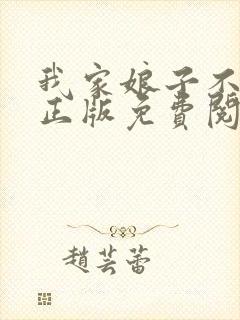 我家娘子不
正版免費閱
趙芸蕾